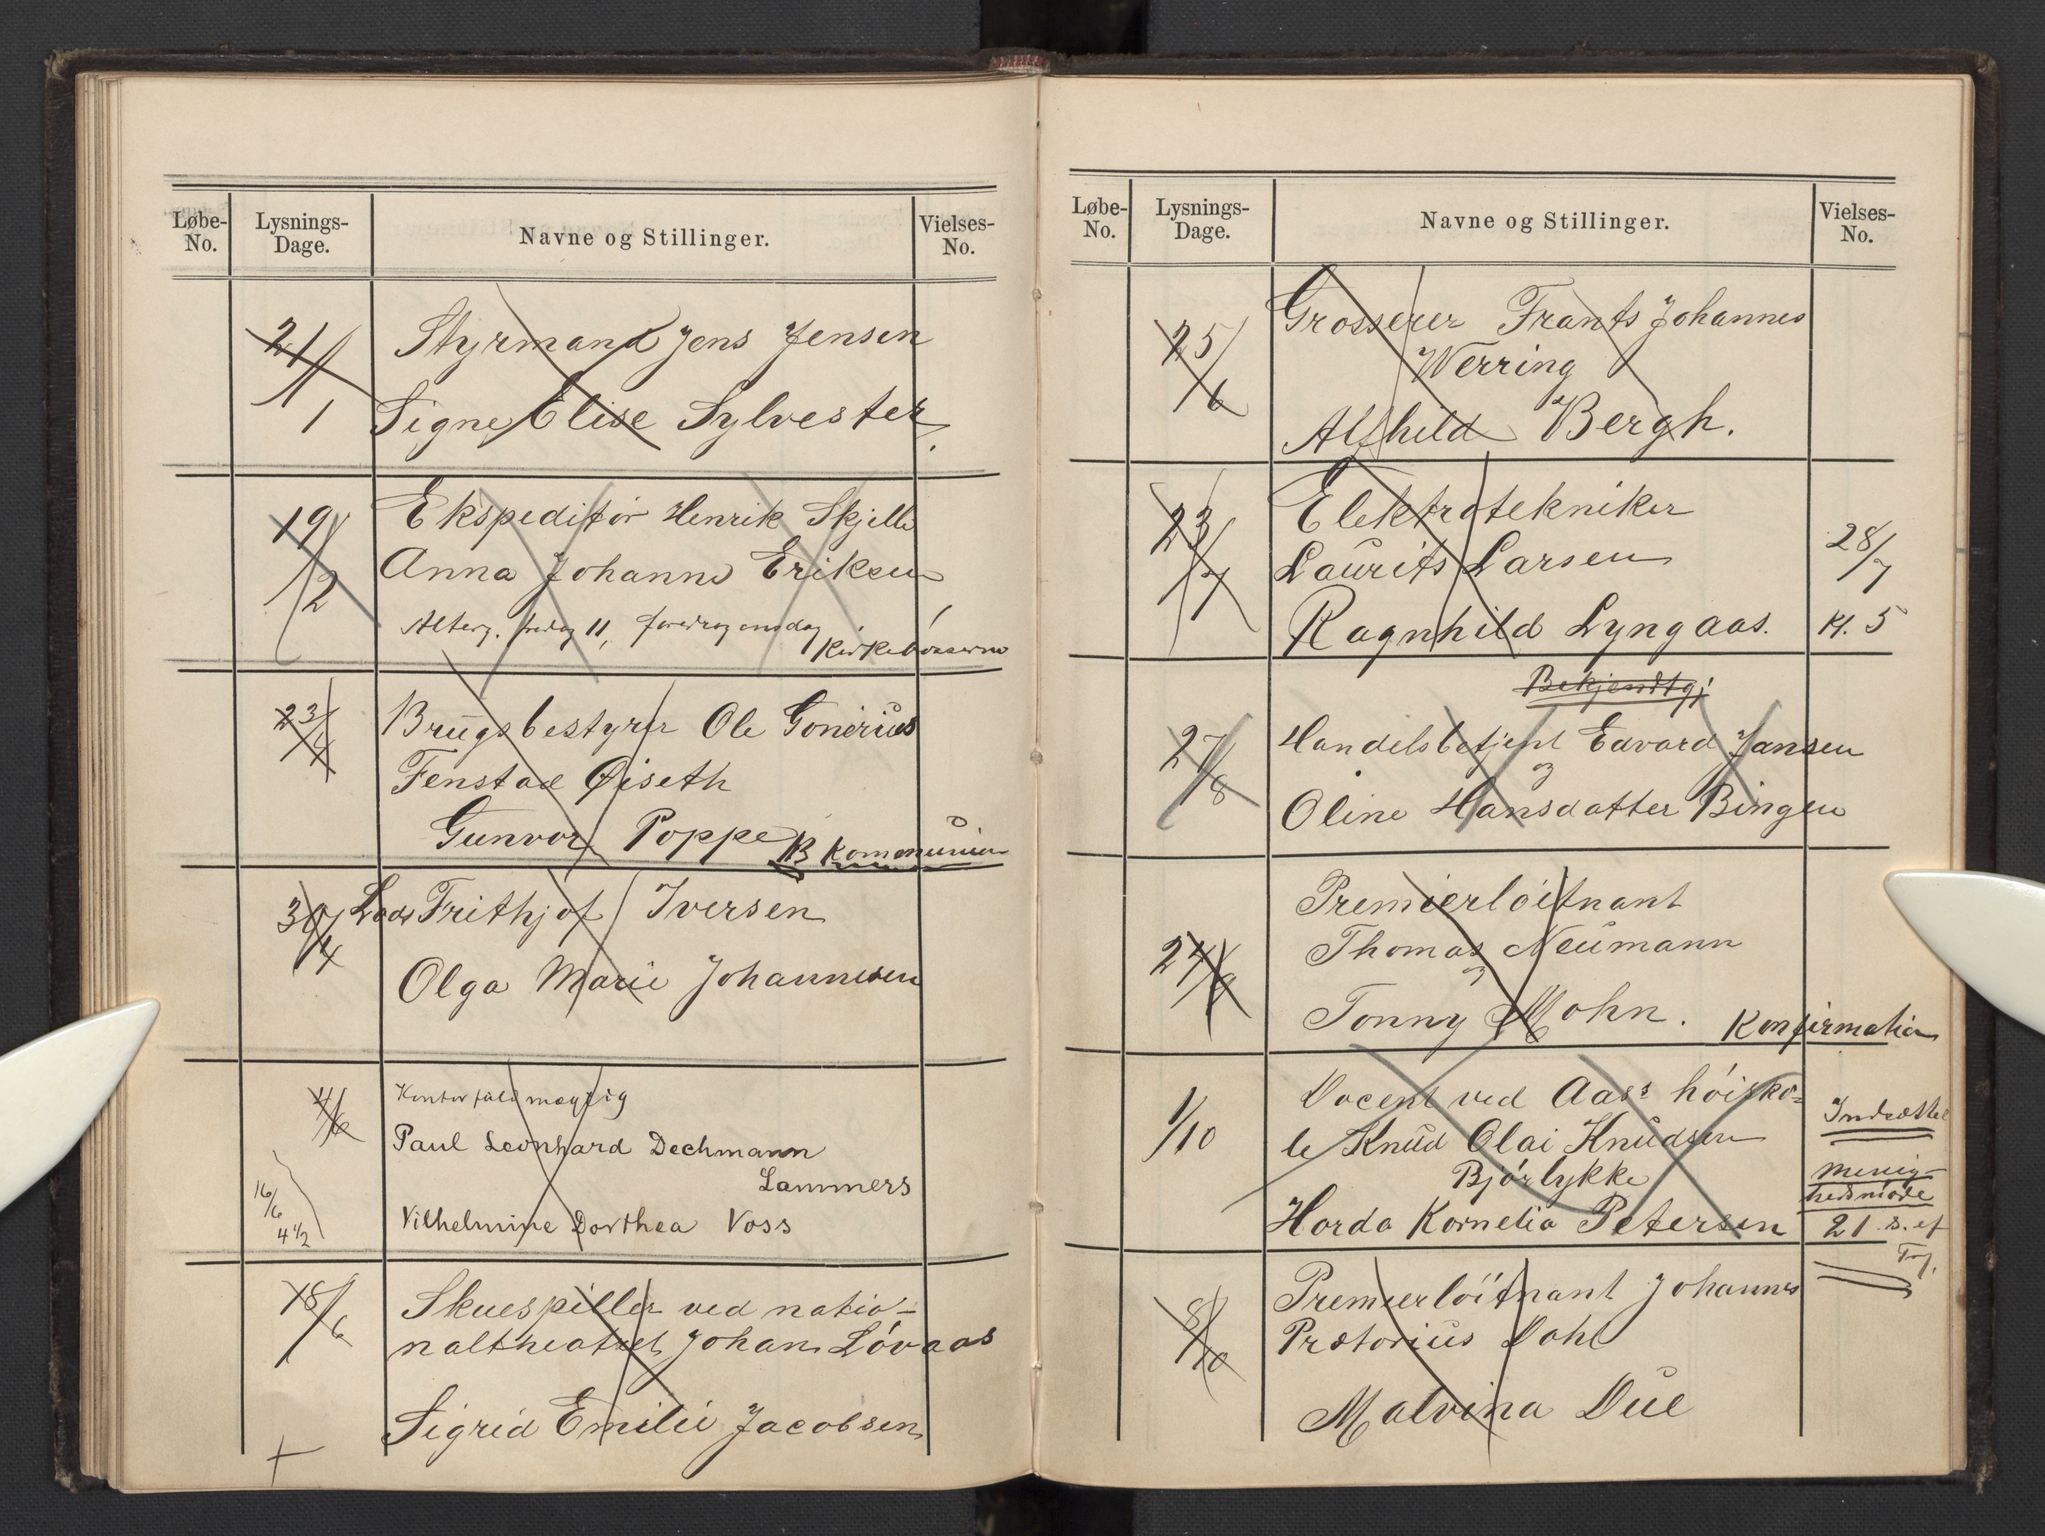 Løbe-No. Lysnings-Dage. Navne og Stillinger. Vielses-No.
21/1 Styrmand Jens Jensen
Signe Elise Sylvester.
19/2 Ekspeditør Henrik Skjelle
Anna Johanne Eriksen
Alterg. fredag 11, foredrag onsdag
Kirkebøsserne
23/4 Brugsbestyrer Ole Gonerius
Fenstad Øiseth
Gunvor Poppe NB Kommunion
30/4 Lods Frithjof Iversen
Olga Marie Johannesen
4/6 Kontorfuldmægtig
Paul Leonhard Dechmann
Lammers
16/6 4 1/2 Vilhelmine Dorthea Voss
18/6 Skuespiller ved natio-
naltheatret Johan Løvaas
Sigrid Emilie Jacobsen
Løbe-No. Lysnings-Dage. Navne og Stillinger. Vielses-No.
25/6 Grosserer Frants Johannes
Werring
Alfhild Bergh.
23/7 Elektrotekniker
Laurits Larsen 28/7
Ragnhild Lyngaas. Kl. 5
Bekjendtgj
27/8 Handelsbetjent Edvard Jansen
og
Oline Hansdatter Bingen
Premierløitnant
24/9 Thomas Neumann
og
Tonny Mohn. Konfirmation
1/10 Docent ved Aas's høisko-
le Knud Olai Knudsen
Bjørlykke
Horda Kornelia Petersen
Indsættel
Menig-
hedsmøde
21 s. ef
Trf.
8/10 Premierløitnant Johannes
Prætorius Dahl
Malvina Due